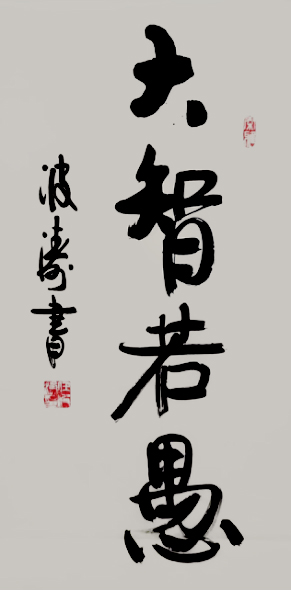 大智若愚
波涛書